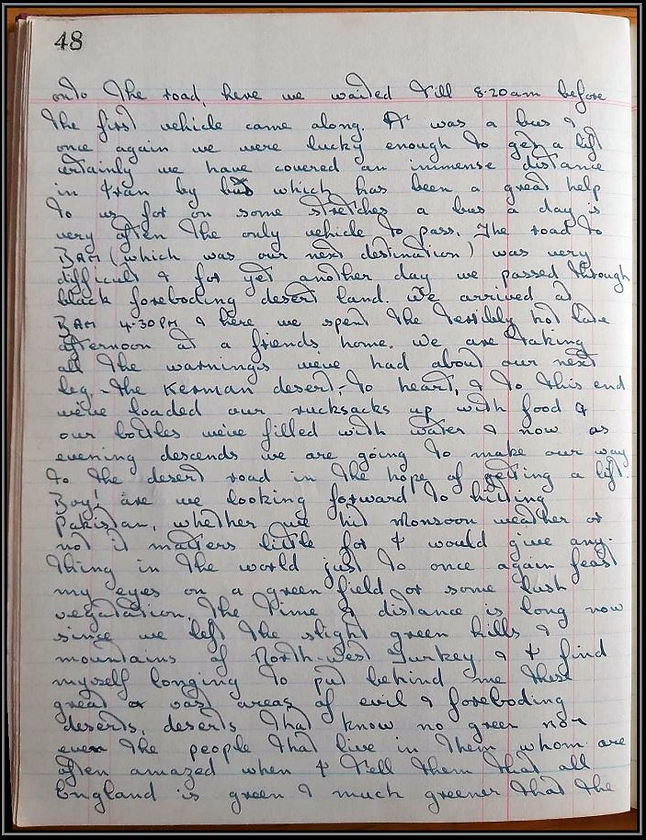 48
onto the road, here we waited till 8.20am before
the first vehicle came along. It was a bus &
once again we were lucky enough to get a lift
certainly we have covered an immense distance
in Iran by bus which has been a great help
to us for on some stretches a bus a day is
very often the only vehicle to pass. The road to
BAM (which was our next destination) was very
difficult & for yet another day we passed through
black foreboding desert land. We arrived at
BAM 4.30PM & here we spent the terribly hot late
afternoon at a friends home. We are taking
all the warnings weve had about our next
leg, - the Kerman desert, - to heart, & to this end
weve loaded our rucksacks up with food &
our bottles weve filled with water & now as
evening descends we are going to make our way
to the desert road in the hope of getting a lift.
Boy! are we looking forward to hitting
Pakistan, whether we hit Monsoon weather or
not it matters little for I would give any-
thing in the world just to once again feast
my eyes on a green field or some lush
vegatation. The time & distance is long now
since we left the slight green hills &
mountains of North-west Turkey & I find
myself longing to put behind me these
great or vast areas of evil & foreboding
deserts, deserts that know no green nor
even the people that live in them whom are
often amazed when I tell them that all
England is green & much greener that the